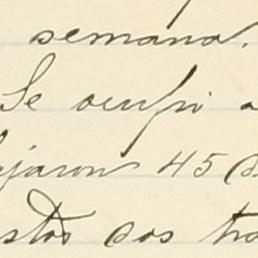 semana.
Se ocupó a
jaron 45 d
stos dos tra